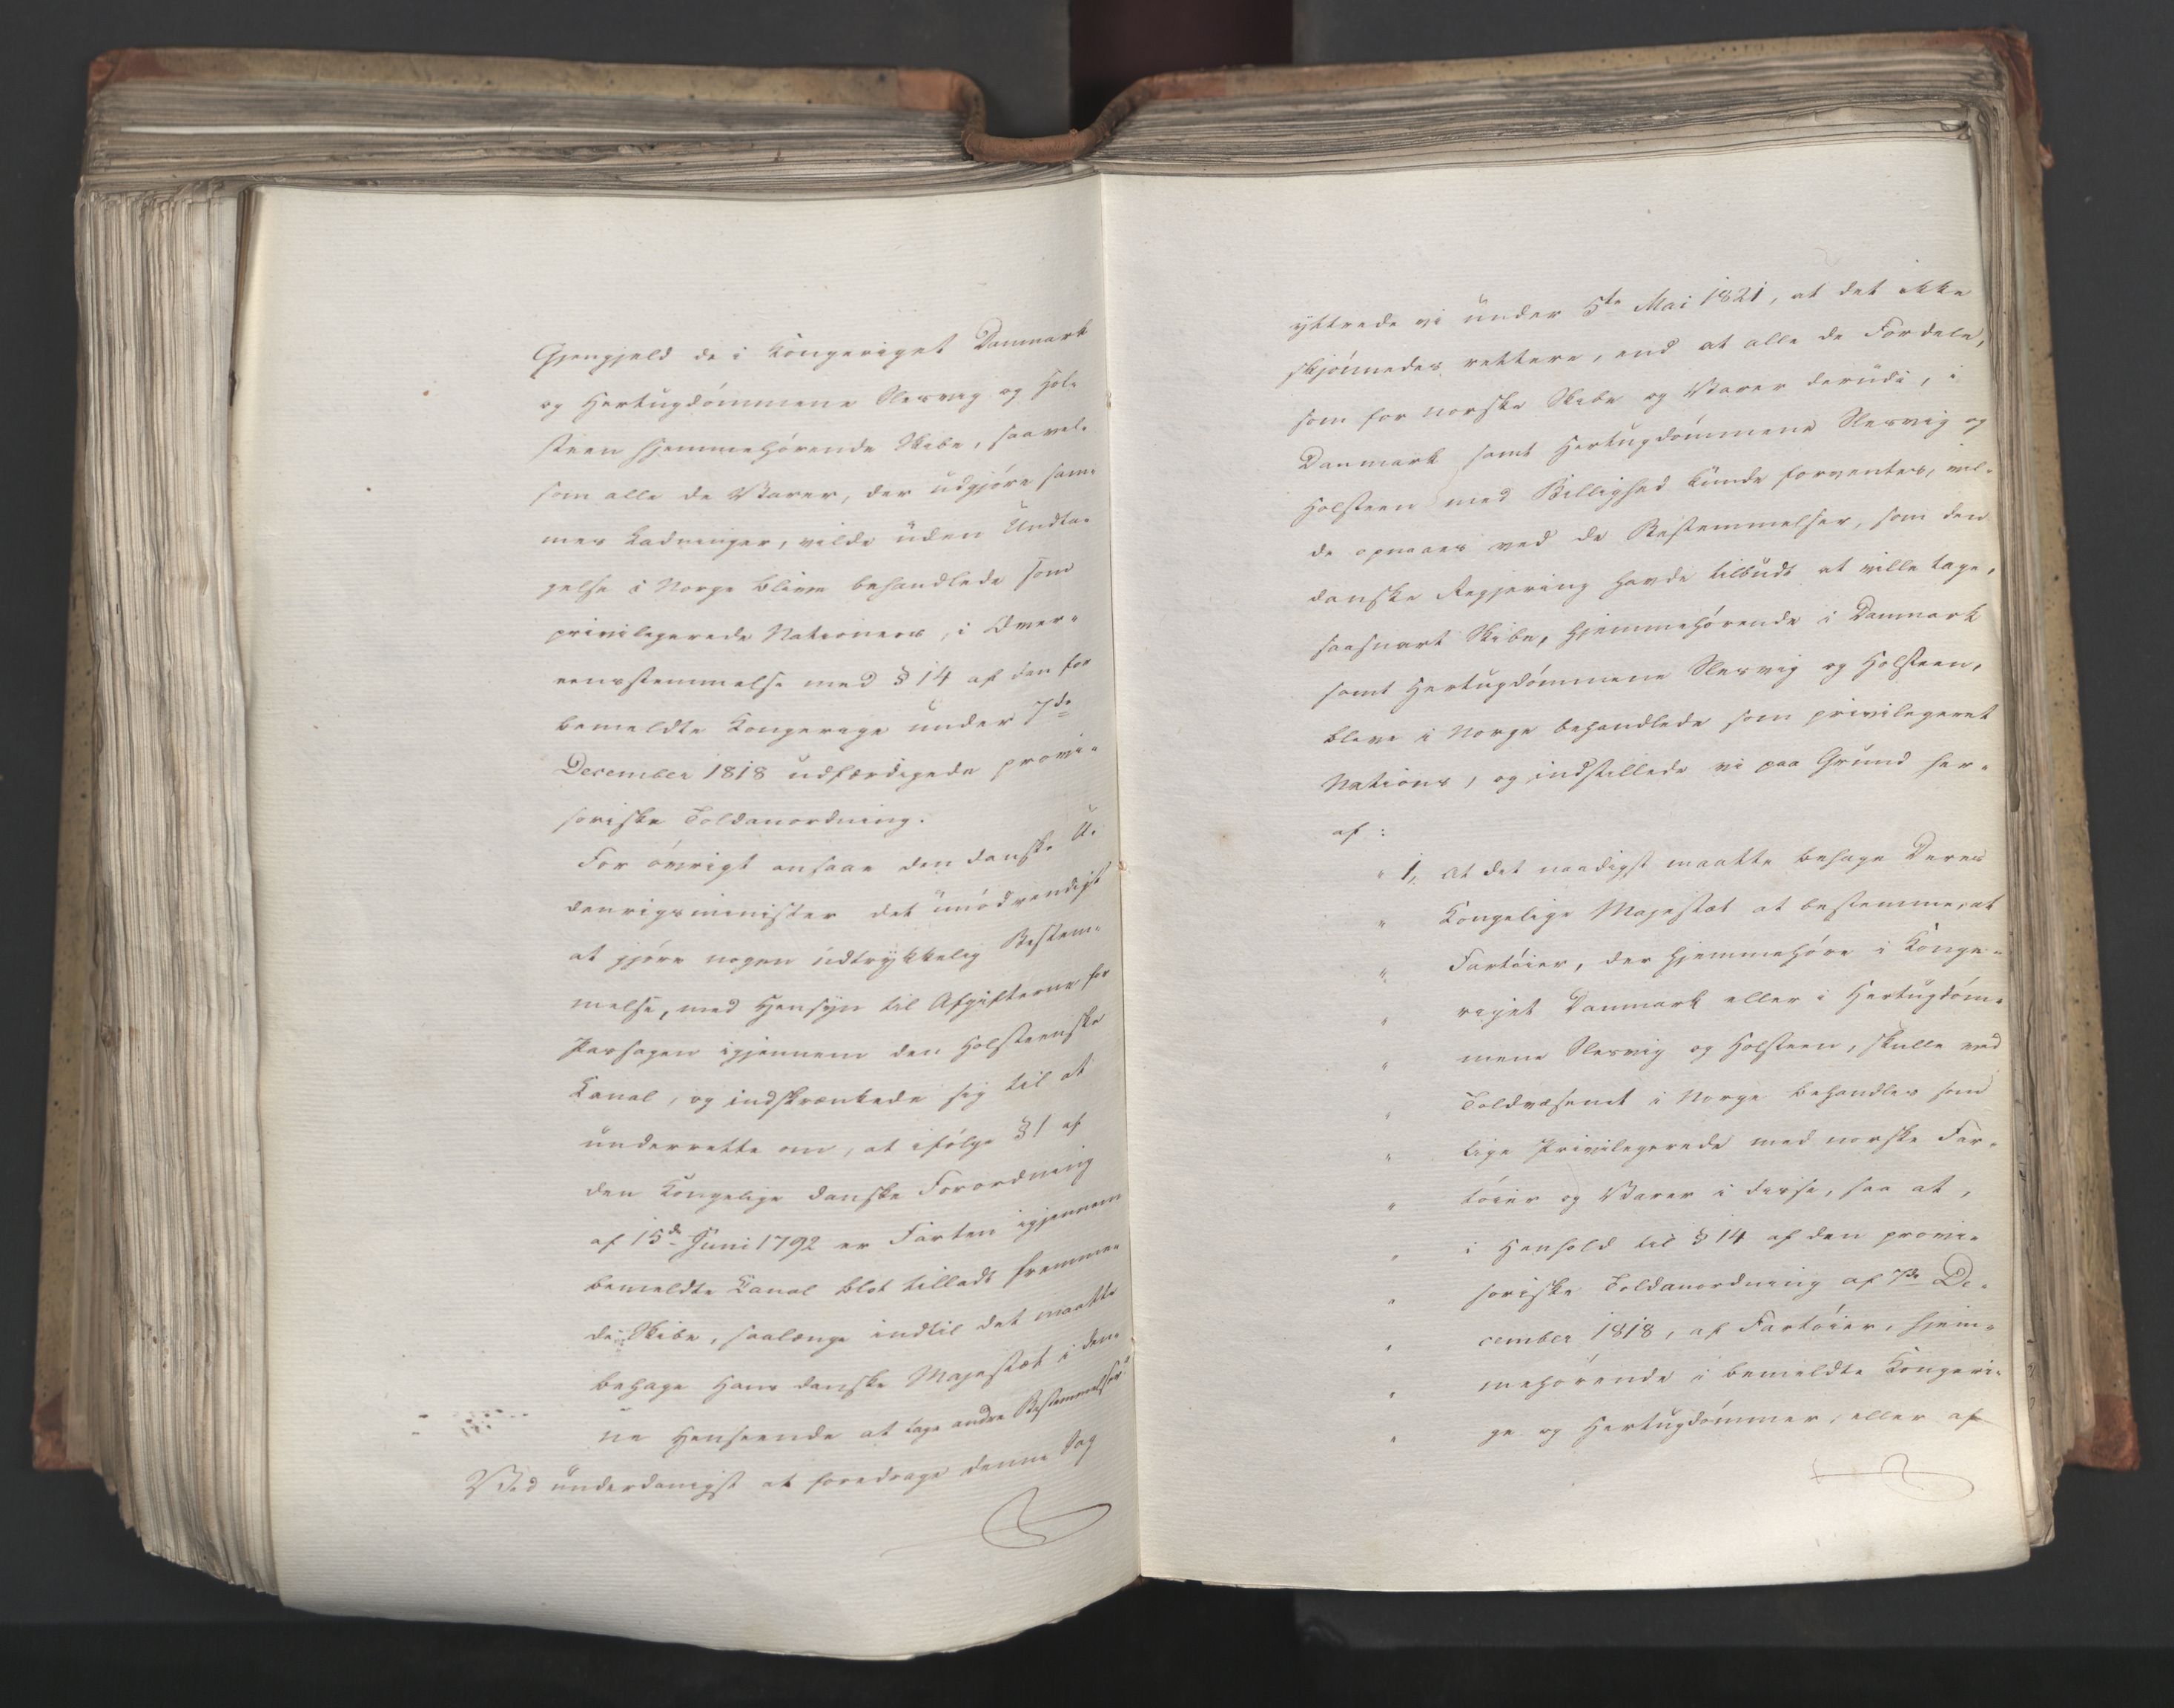 Gjengjeld de i Kongeriget Danmark
og Hertugdømmene Slesvig og Hol-
steen hjemmehørende Skibe, saavel-
som alle de Varer, der udgjøre sam-
mes Ladninger, vilde uden Undta-
gelse i Norge blive behandlede som
privilegerede Nationers, i Over-
eensstemmelse med § 14 af den for
bemeldte Kongerige under 7de
December 1818 udfærdigede provi-
soriske Toldanordning.
For øvrigt ansaae den danske U-
denrigsminister det unødvendigt
at gjøre nogen udtrykkelig Bestem-
melse, med Hensyn til Afgifterne for
Passagen igjennem den Holsteenske
Kanal, og indskrænkede sig til at
underrette om, at ifølge § 1 af
den Kongelige danske Forordning
af 15de Juni 1792 er Farten igjennem
bemeldte Kanal blot tilladt fremme-
de Skibe, saalænge indtil det maatte
behage Hans danske Majestæt i den-
ne Henseende at tage andre Bestemmelser"
Ved underdanigst at foredrage denne Sag
yttrede vi under 5te Mai 1821, at det ikke
skjønnedes rettere, end at alle de Fordele,
som for norske Skibe og Varer derudi, i
Danmark samt Hertugdømmene Slesvig og
Holsteen med Billighed kunde forventes, vil-
de opnaaes ved de Bestemmelser, som den
danske Regjering havde tilbudt at ville tage,
saasnart Skibe, hjemmehørende i Danmark
samt Hertugdømmene Slesvig og Holsteen,
bleve i Norge behandlede som privilegeret
Nations, og indstillede vi paa Grund her-
af:
" 1, At det naadigst maatte behage Deres
" Kongelige Majestæt at bestemme, at
" Fartøier, der hjemmehøre i Konge-
" riget Danmark eller i Hertugdøm-
" mene Slesvig og Holsteen, skulle ved
" Toldvæsenet i Norge behandles som
" lige Privilegerede med norske Far-
" tøier og Varer i disse, saa at,
" i Henhold til § 14 af den provi-
" soriske Toldanordning af 7de De-
" cember 1818, af Fartøier, hjem-
" mehørende i bemeldte Kongeri-
" ge og Hertugdømmer, eller af